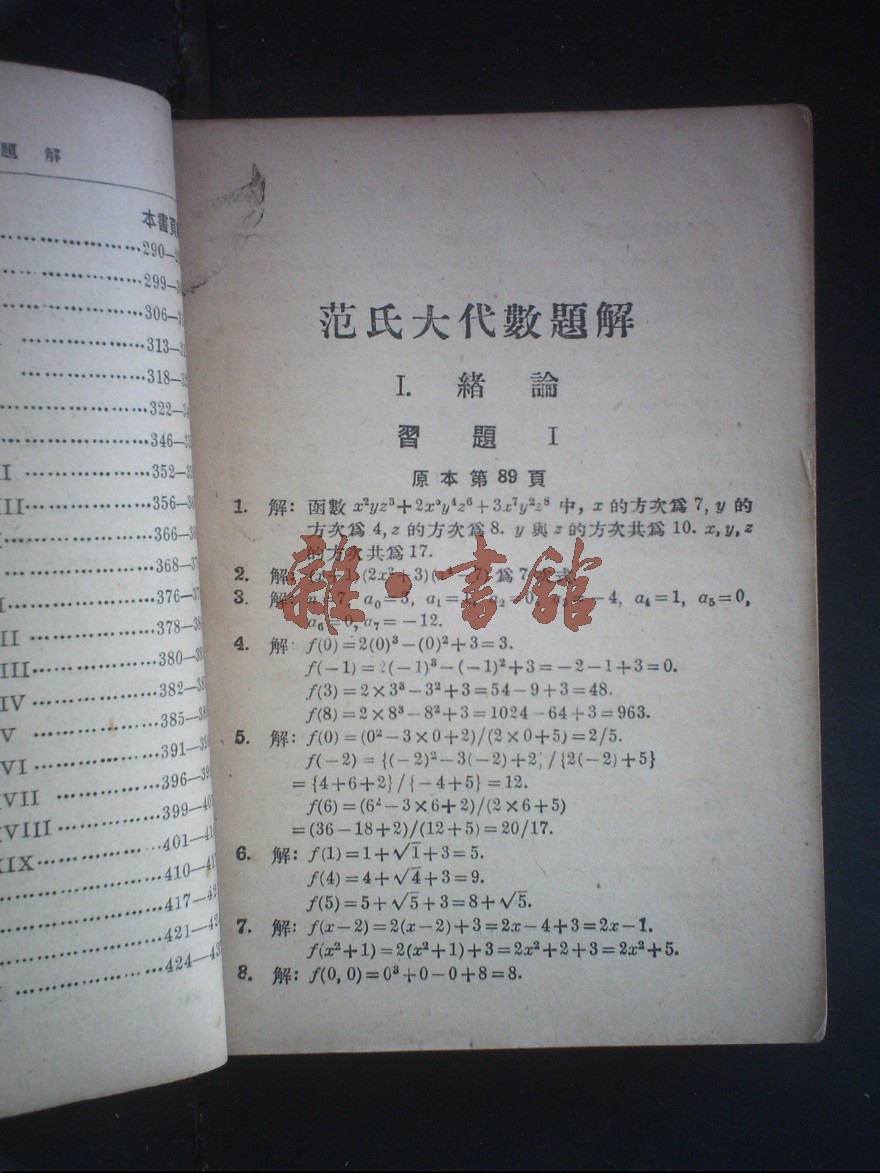 題 解
本書頁
290—
299—
306—
313—3
318—3
322—3
346—3
II 352—35
III 356—36
366—36
368—37
376—37
II 378—38
III 380—38
IV 382—38
V 385—38
VI 391—39
VII 396—39
VIII 399—40
XIX 401—41
410—41
417—42
421—42
424—43
范氏大代數題解
I. 緒 論
習 題 I
原本第89頁
1. 解: 函數 x²yz³+2x⁵y⁴z⁶+3x⁷y²z⁸ 中, x 的方次爲 7, y 的
方次爲 4, z 的方次爲 8. y 與 z 的方次共爲 10. x, y, z
的方次共爲 17.
2. 解: (x+1)(2x²+3)(x⁴−7) 爲 7 次式.
3. 解: n=7, a₀=3, a₂=0, −4, a₄=1, a₅=0,
a₆=0, a₇=−12.
4. 解: f(0)=2(0)³−(0)²+3=3.
f(−1)=2(−1)³−(−1)²+3=−2−1+3=0.
f(3)=2×3³−3²+3=54−9+3=48.
f(8)=2×8³−8²+3=1024−64+3=963.
5. 解: f(0)=(0²−3×0+2)/(2×0+5)=2/5.
f(−2)={(−2)²−3(−2)+2}/{2(−2)+5}
={4+6+2}/{−4+5}=12.
f(6)=(6²−3×6+2)/(2×6+5)
=(36−18+2)/(12+5)=20/17.
6. 解: f(1)=1+√1+3=5.
f(4)=4+√4+3=9.
f(5)=5+√5+3=8+√5.
7. 解: f(x−2)=2(x−2)+3=2x−4+3=2x−1.
f(x²+1)=2(x²+1)+3=2x²+2+3=2x²+5.
8. 解: f(0, 0)=0³+0−0+8=8.
雜·書館